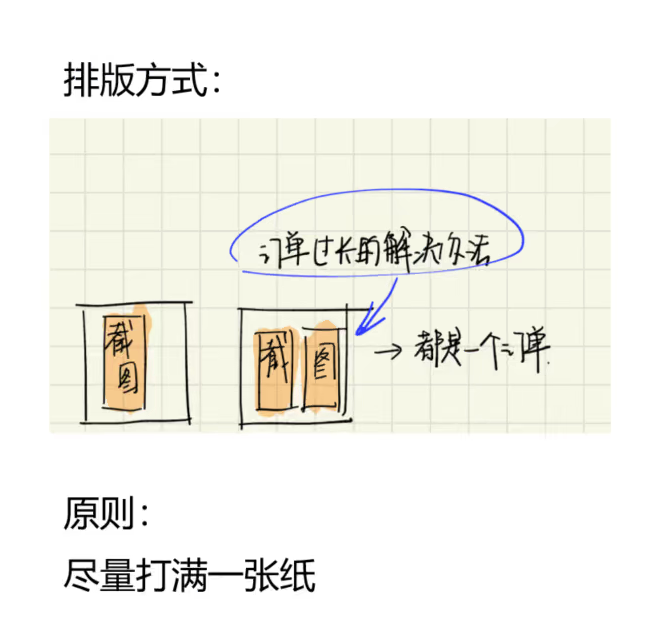 排版方式：
订单过长的解决办法
截图
截 图 → 都是一个订单.
原则：
尽量打满一张纸